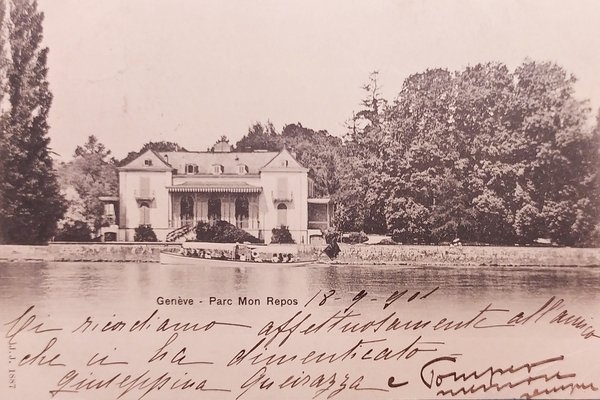 Genève - Parc Mon Repos 18-9-901
Ci ricordiamo affettuotamente all'amica
che ci ha dimenticato
Giuseppina Gueirazza e Pompeo
J.J. 1887